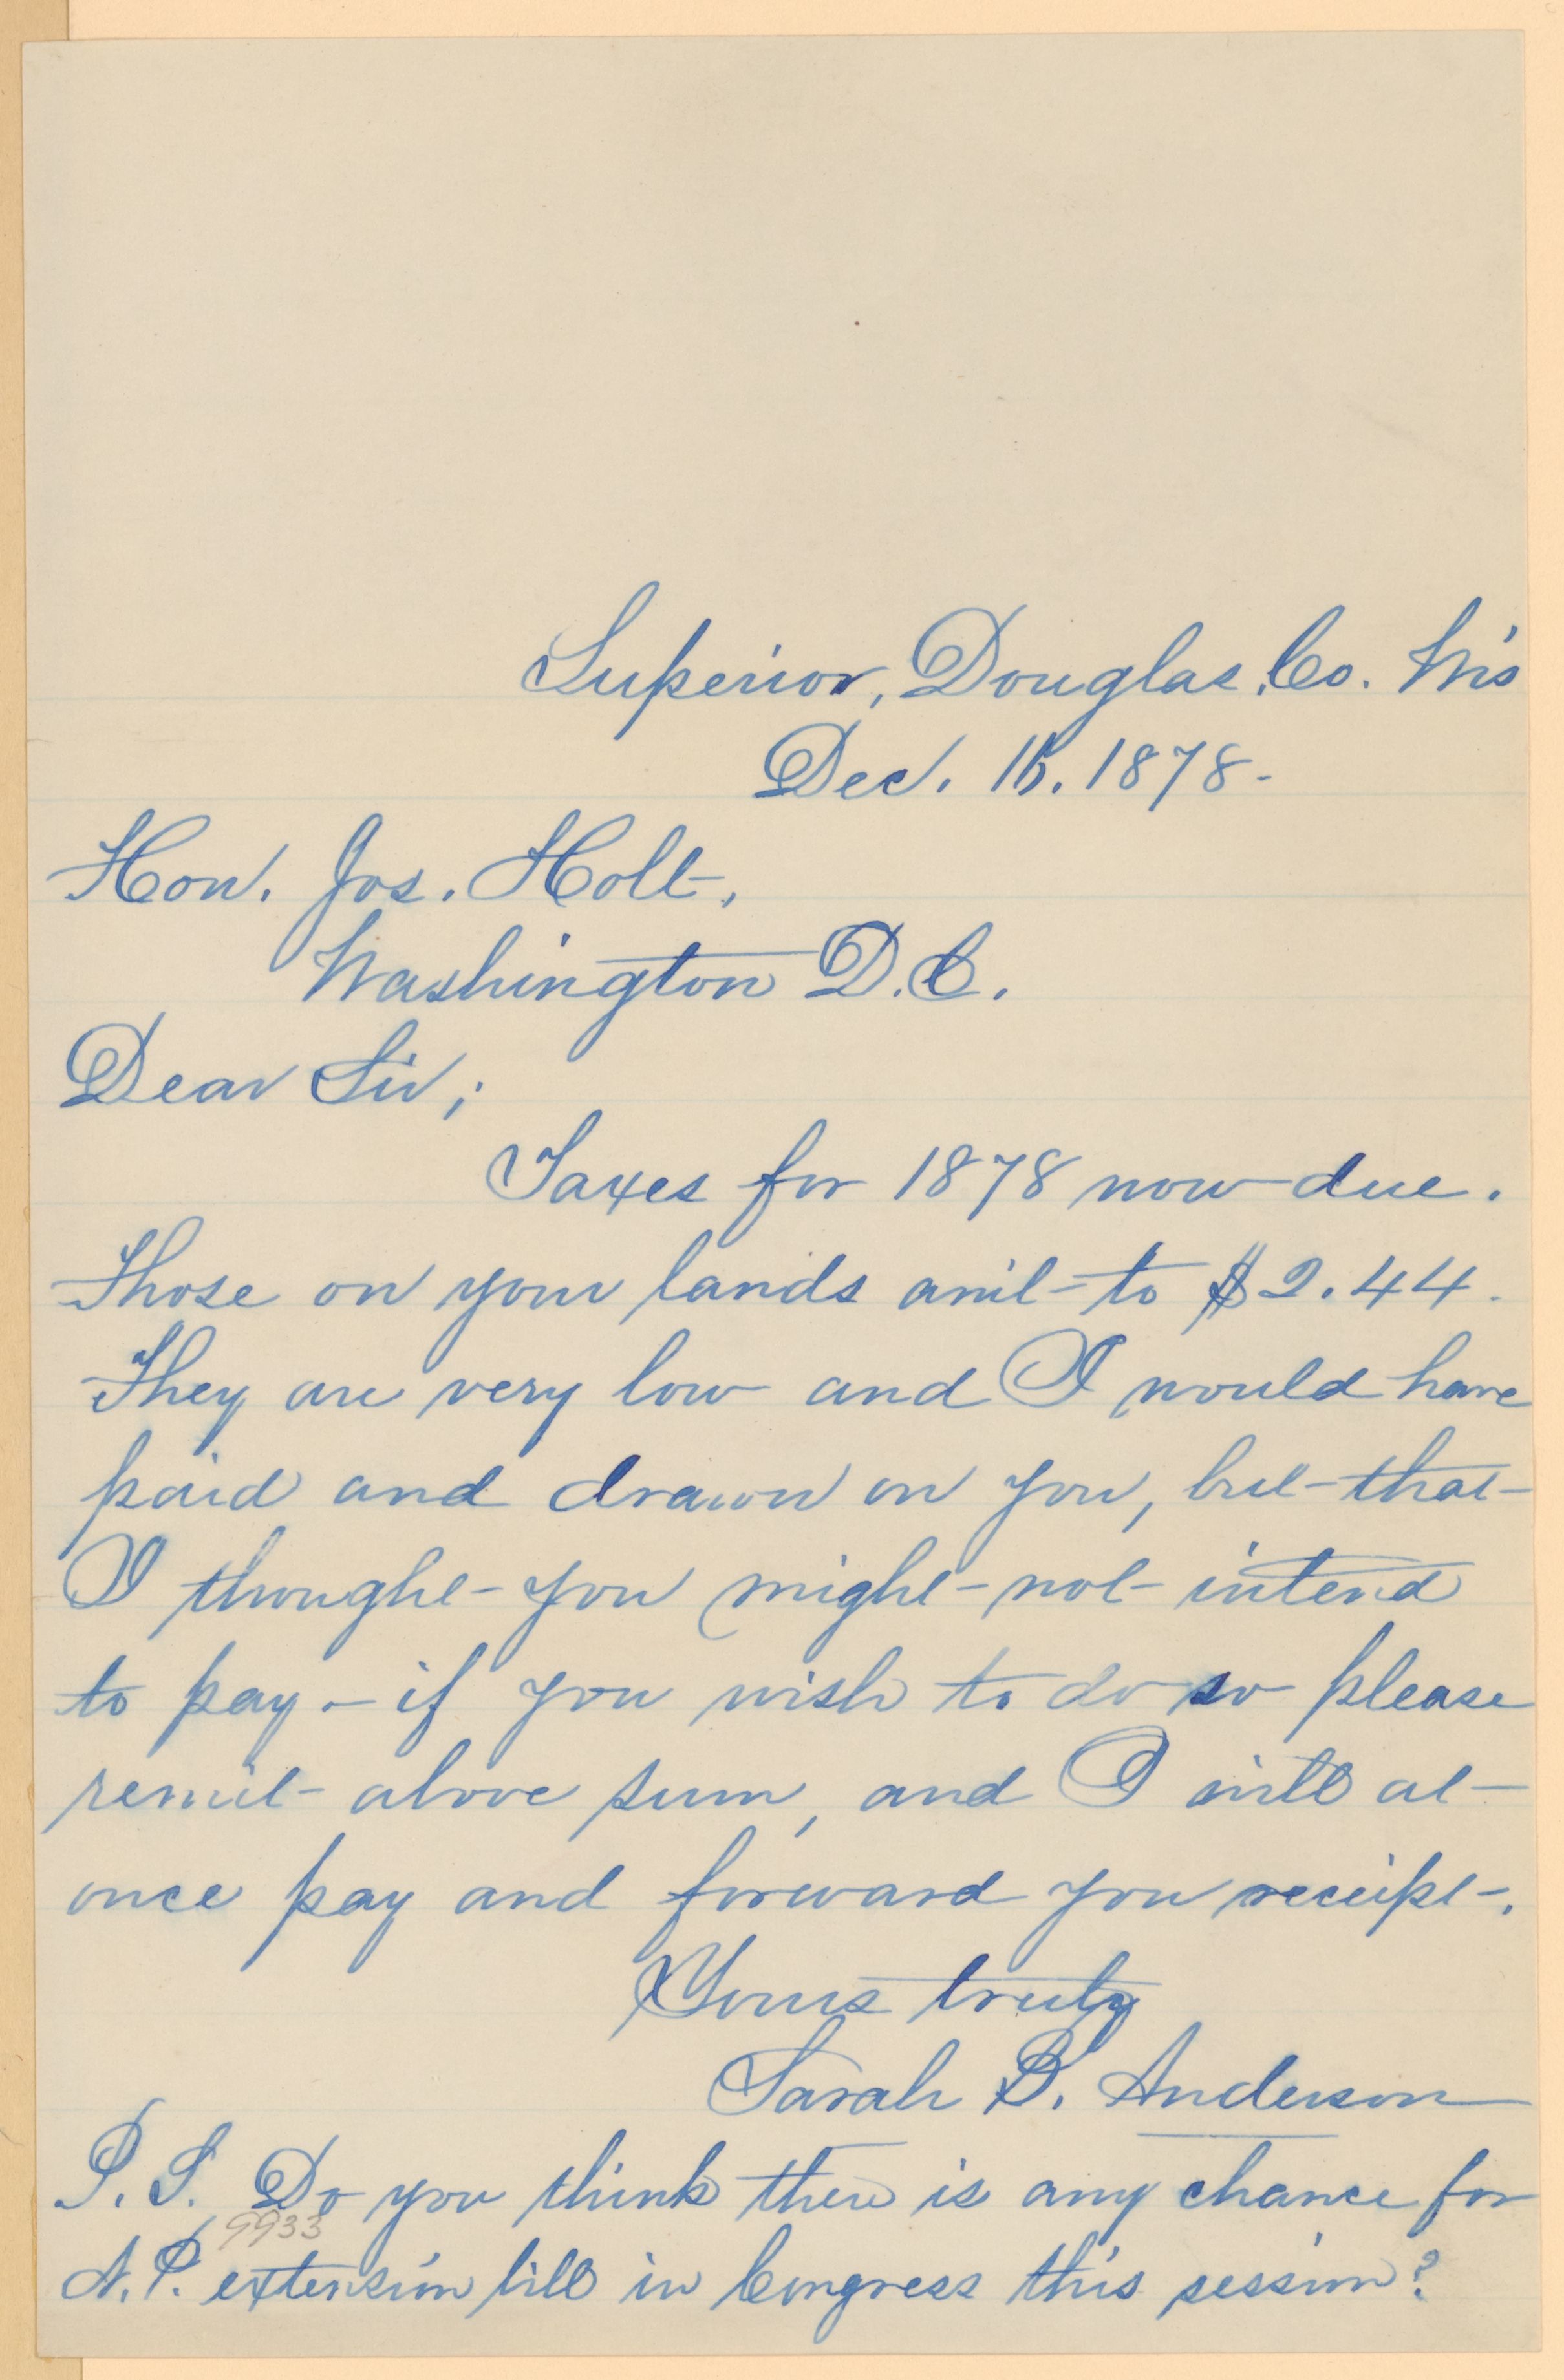 Superior, Douglas, Co. Wis
Dec. 16. 1878-
Hon. Jos. Holt,
Washington D.C.
Dear Sir;
Taxes for 1878 now due.
Those on your lands amt to $2.44.
They are very low and I would have
paid and drawn on you, but that
I thought you might not intend
to pay - if you wish to do so please
remit above sum, and I will at
once pay and forward you receipt.
Yours truly
Sarah B. Anderson
P.S. Do you think there is any chance for
9933
N.P. extension bill in Congress this session?